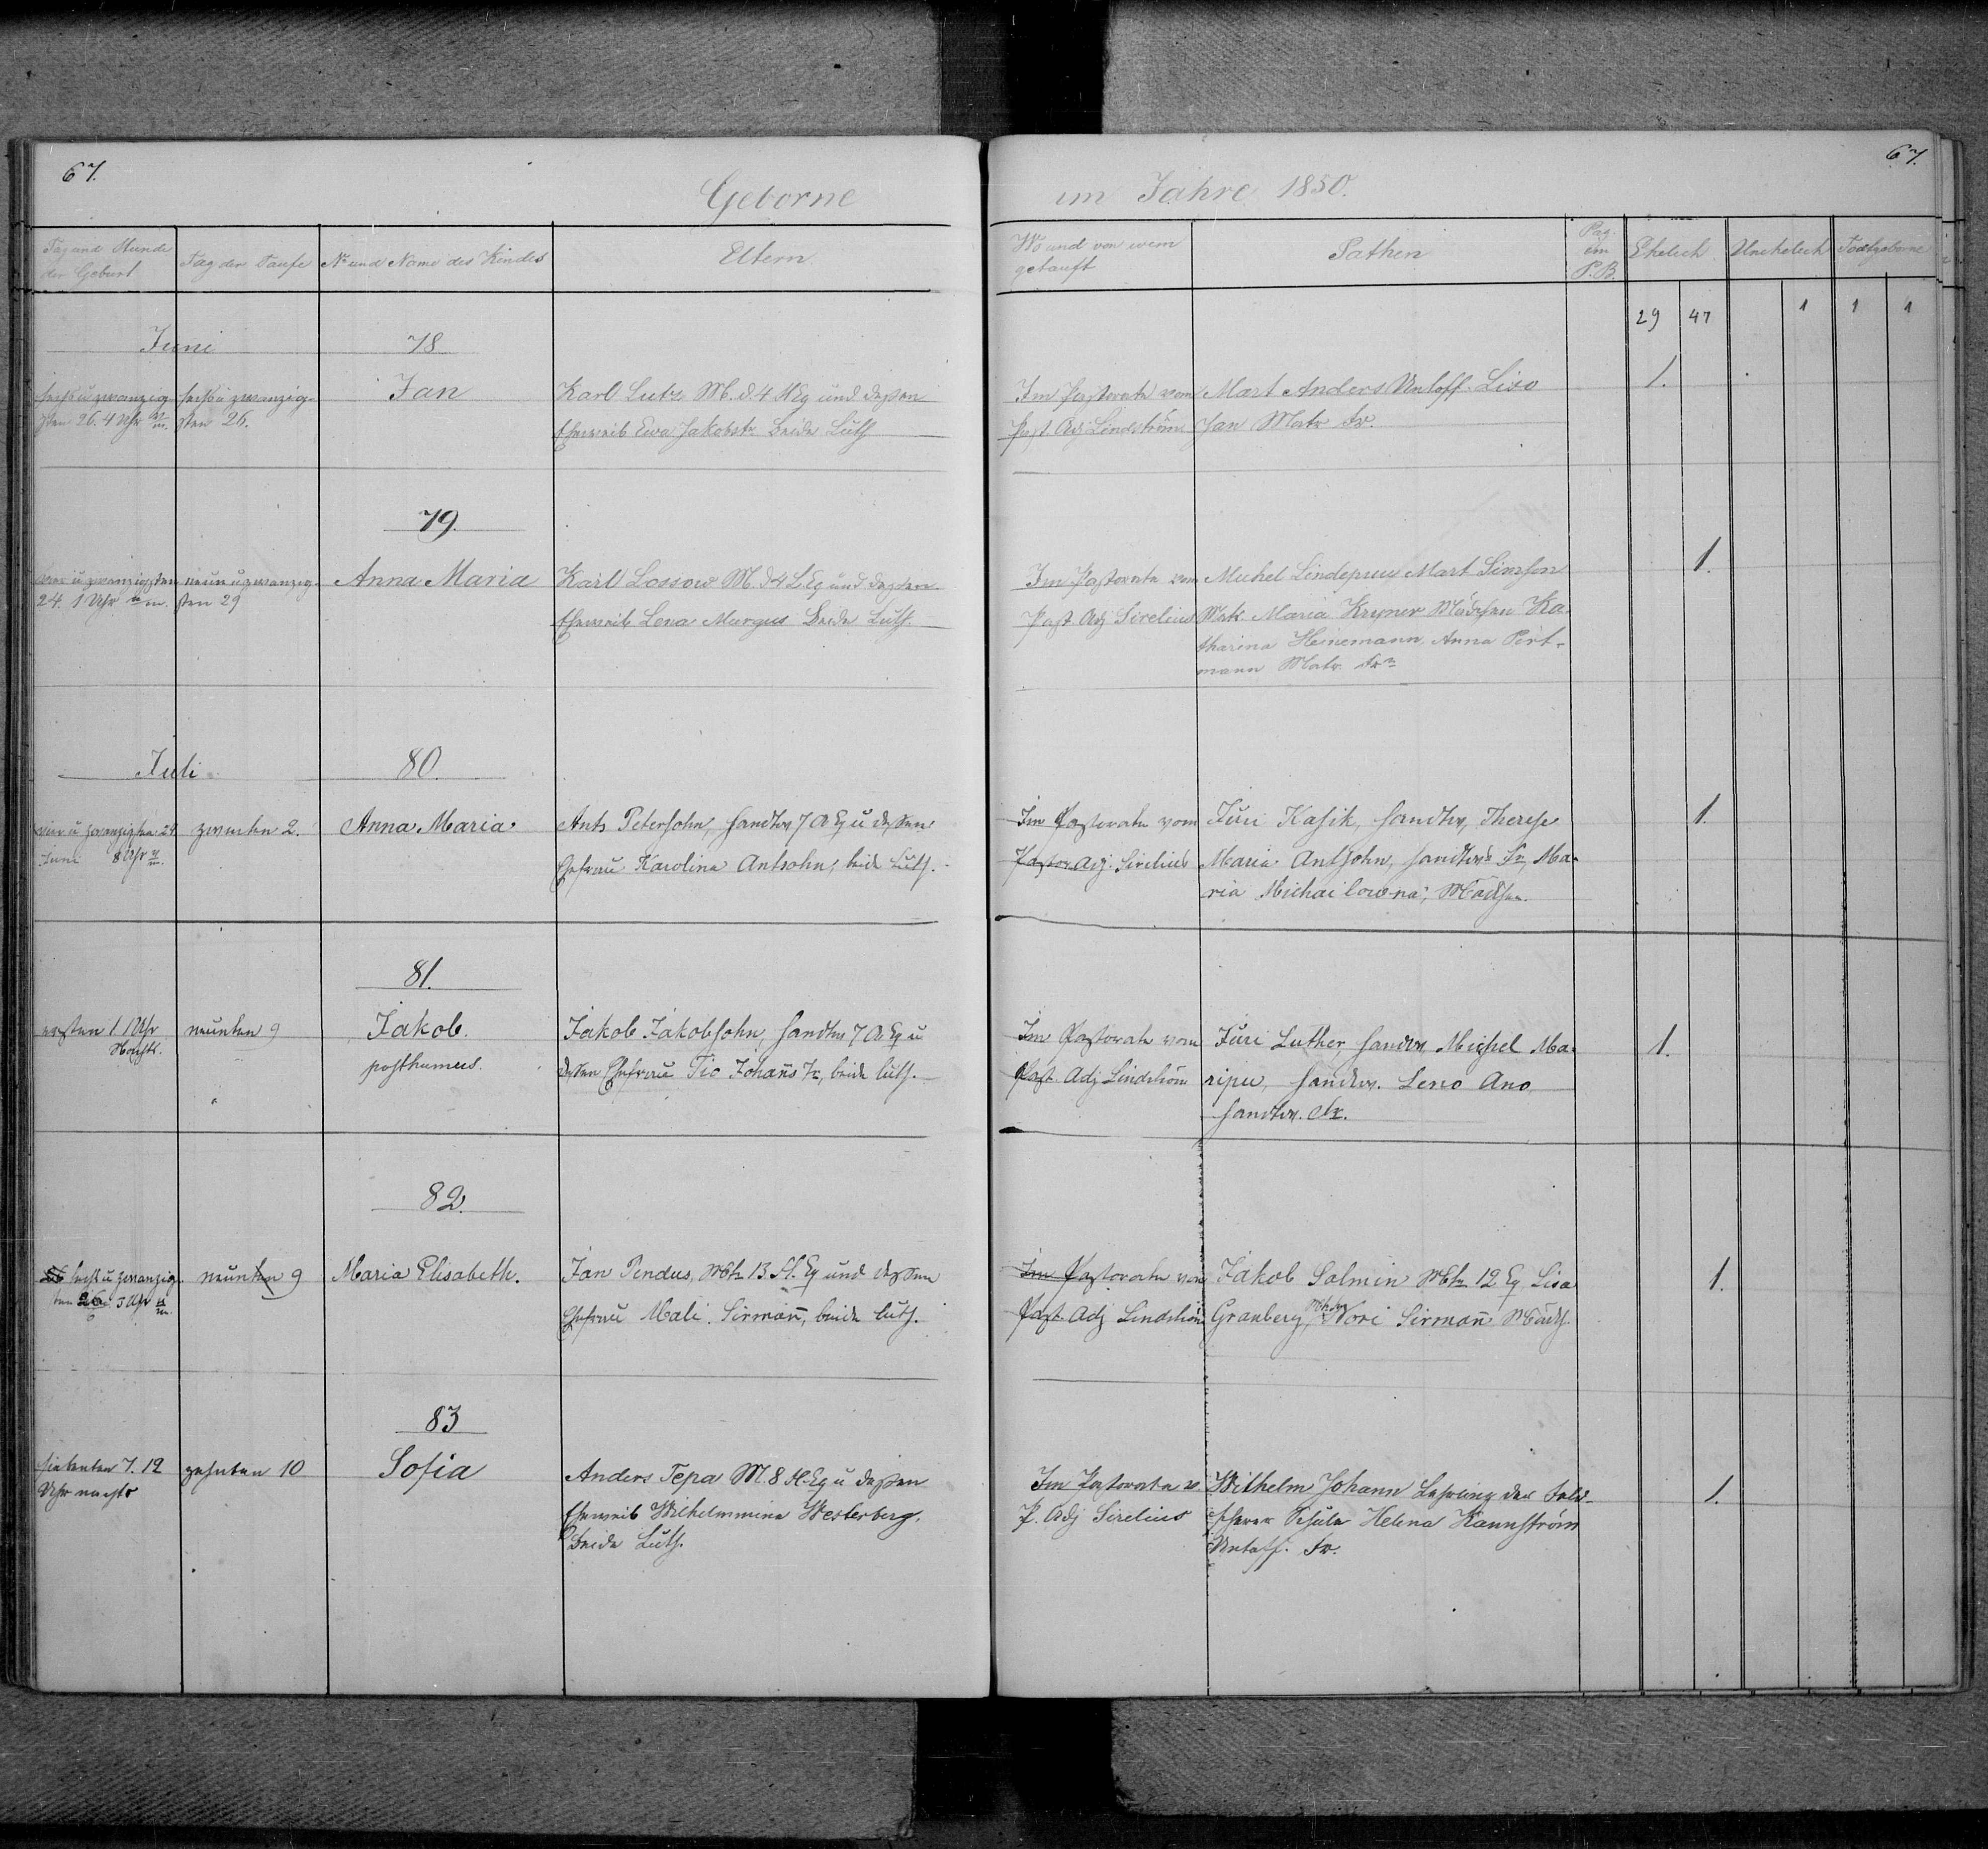 67.
67.
Geborne
im Jahre 1850.
Tag und Stunde
der Geburt
Tag der Taufe
No und Name des Kindes
Eltern
Wo und von wem
getauft
Pathen
Pag.
im
P.B.
Ehelich
Unehelich
Todtgeborne
29 47 1 1 1
Juni
78
sechs u zwanzig-
sten 26. 4 Uhr
sechs u zwanzig-
sten 26.
Jan
Karl Lutz M. d. 4 und dessen
Eheweib Ewa Jakobstr. beide Luth
Im Pastorate vom
Past Adj Lindström
Mart Anders Untoff. Liso
Jan Matr Fr.
1.
79.
vier u zwanzigsten
24. 1 Uhr
neun u zwanzig-
sten 29
Anna Maria
Karl Lossow M. d 4 L. Eq und dessen
Eheweib Lena Murgus Beide Luth.
Im Pastorate vom
Past Adj Sirelius
Michel Lindepuu Mart Simson
Matr. Maria Kryner Mädchen Ka-
tharina Heinemann, Anna Pert-
mann Matr. Frn
1.
Juli
80.
vier u zwanzigsten 24.
Juni 8 Uhr
zweiten 2.
Anna Maria
Ants Petersohn, Handlr 7 Eq u dessen
Ehefrau Karolina Antsohn, beide Luth.
Im Pastorate vom
Pastor Adj. Sirelius
Jüri Kasik, Handlr, Therese
Maria Antsohn, Handlrs Fr, Ma-
ria Michailowna, Mädchen.
1.
81.
ersten 1. 1 Uhr
Nachts.
neunten 9
Jakob.
posthumus.
Jakob Jakobsohn, Handlr 7 Eq u
dessen Ehefrau Tio Johanns Tr, beide luth.
Im Pastorate vom
Past. Adj Lindström
Jüri Luther, Handlr Michel Ma-
ripu, Handlr. Leno Ano
Handlr. Fr.
1.
82.
sechs u zwanzig-
ten 26. 3 Uhr
neunten 9
Maria Elisabeth.
Jan Pendus, Mtr 13. Fl. Eq und dessen
Ehefrau Mali Sirmann, beide luth.
Im Pastorate von
Past. Adj Lindström
Jakob Salmin Mtr 12 Eq Lisa
Granberg, Nori Sirmann Mädch
1.
83
siebenten 7. 12
Uhr nachts
zehnten 10
Sofia
Anders Tepa M. 8 Fl. Eq u dessen
Eheweib Wilhelmmina Westerberg.
Beide Luth.
Im Pastorate v
P. Adj Sirelius
Wilhelm Johann Lehrling der Feld-
scherer Schule Helena Kannström
Untoff. Fr.
1.